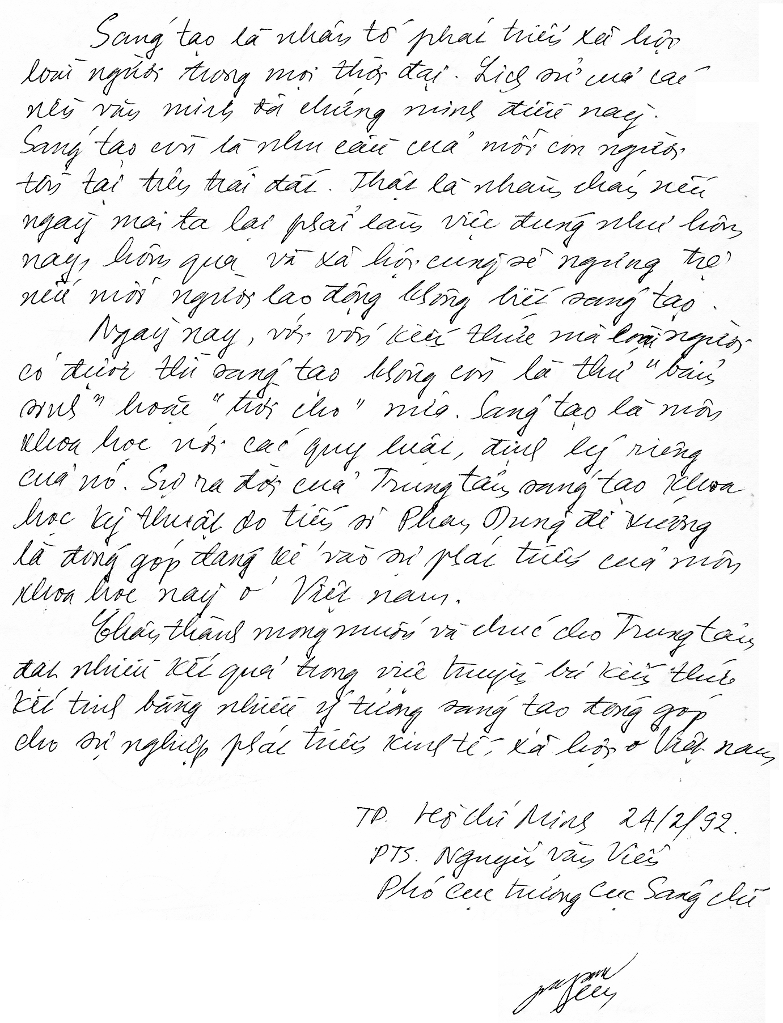 Sáng tạo là nhân tố phát triển xã hội
loài người trong mọi thời đại. Lịch sử của các
nền văn minh đã chứng minh điều này.
Sáng tạo còn là nhu cầu của mỗi con người
tồn tại trên trái đất. Thật là nhàm chán nếu
ngày mai ta lại phải làm việc đúng như hôm
nay, hôm qua và xã hội cũng sẽ ngừng trệ
nếu mỗi người lao động không biết sáng tạo.
Ngày nay, với vốn kiến thức mà loài người
có được thì sáng tạo không còn là thứ "bẩm
sinh" hoặc "trời cho" nữa. Sáng tạo là môn
khoa học với các quy luật, định lý riêng
của nó. Sự ra đời của Trung tâm sáng tạo khoa
học kỹ thuật do tiến sĩ Phan Dũng đề xướng
là đóng góp đáng kể vào sự phát triển của môn
khoa học này ở Việt nam.
Chân thành mong muốn và chúc cho Trung tâm
đạt nhiều kết quả trong việc truyền bá kiến thức
kết tinh bằng nhiều ý tưởng sáng tạo đóng góp
cho sự nghiệp phát triển kinh tế, xã hội ở Việt nam
TP. Hồ Chí Minh 24/2/92.
PTS. Nguyễn Văn Viễn
Phó cục trưởng Cục Sáng chế